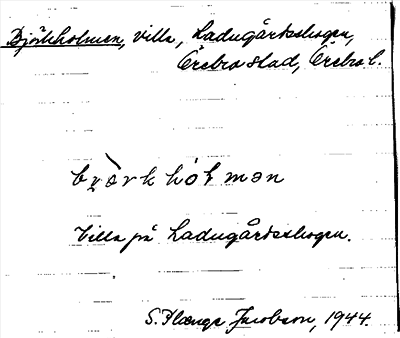 Björkholmen, villa, Ladugårdsskogen,
Örebro stad, Örebro l.
bjö̀rkhól̀mən
Villa på Ladugårdsskogen.
S. Flænge Jacobson, 1944.